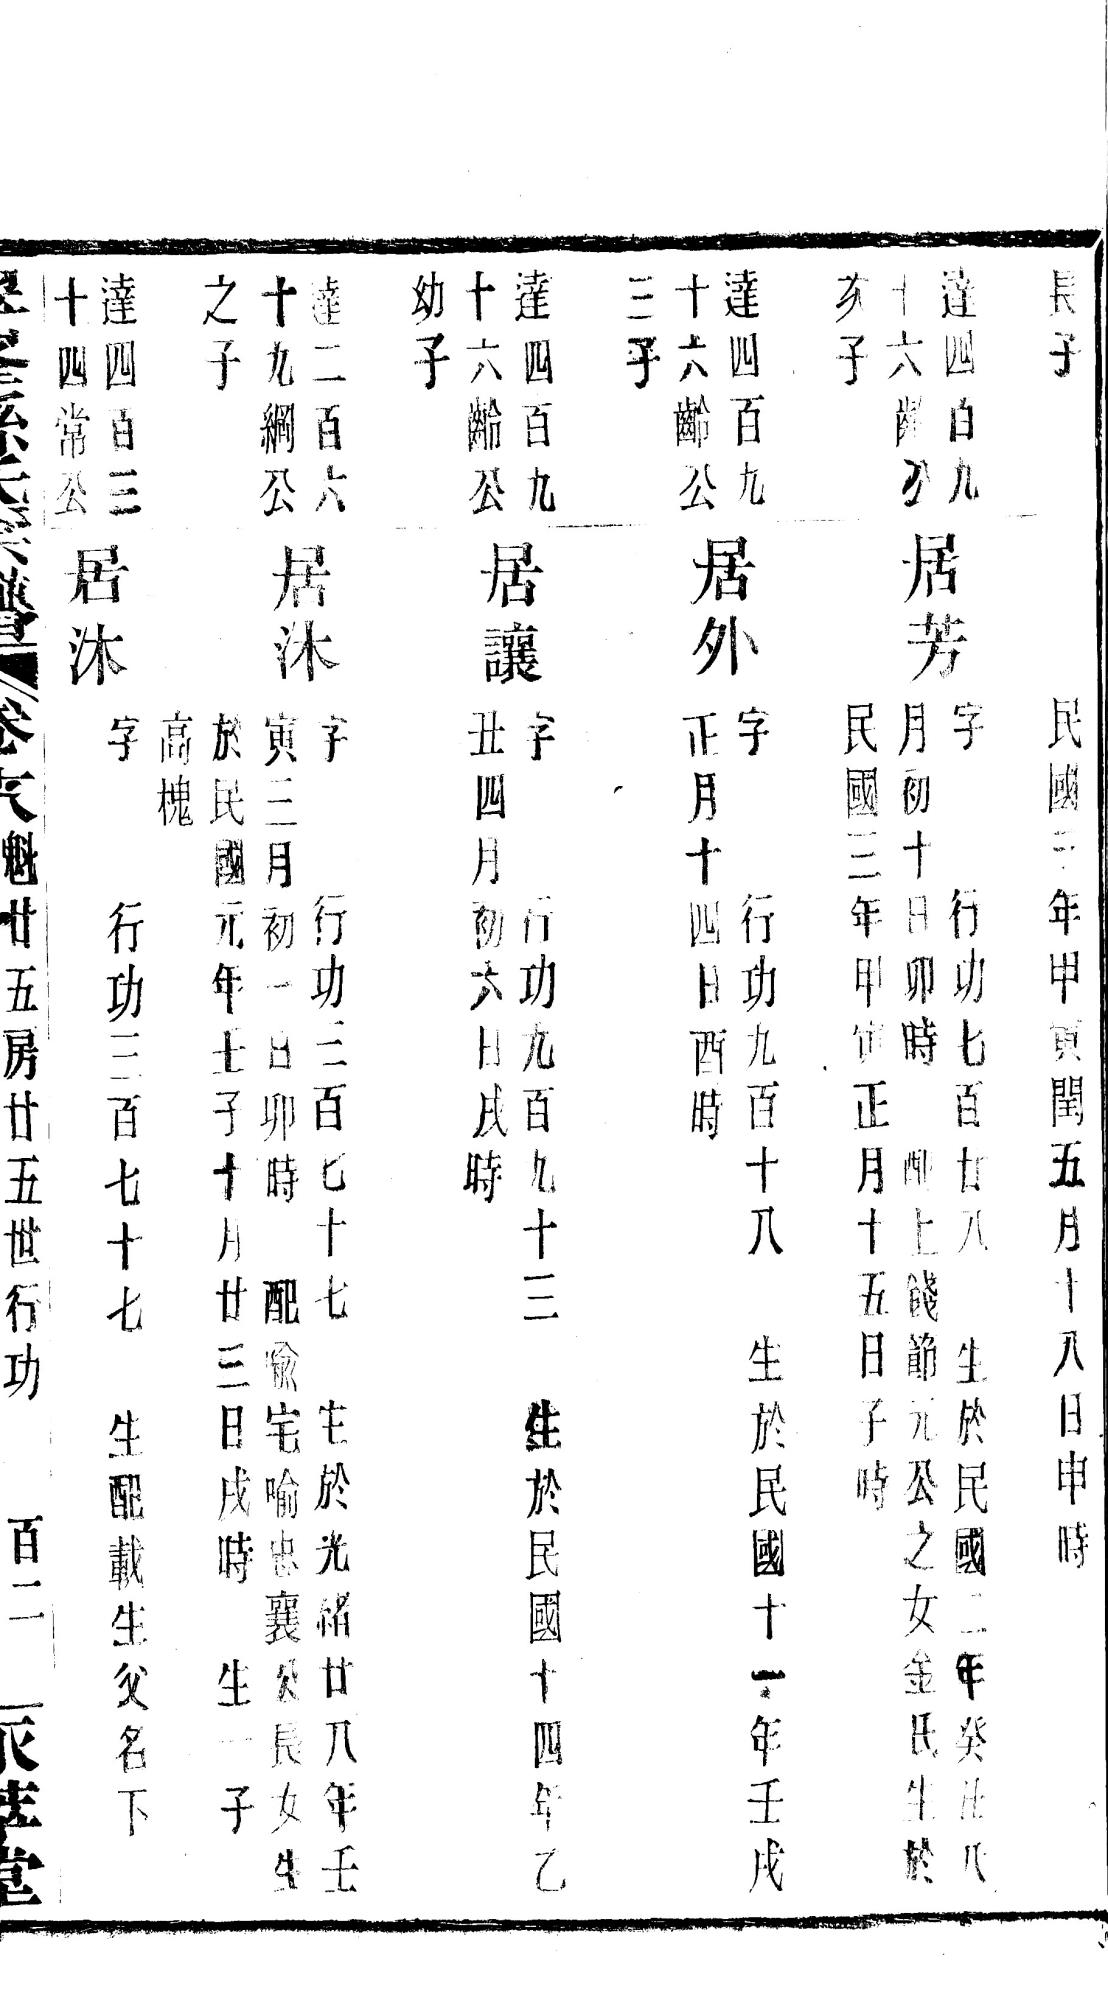 長子
民國三年甲寅閏五月十八日申時
達四百九
十六齡公
亥子
居芳
字　行功七百廿八　生於民國二年癸丑八
月初十日卯時　配上餞節元公之女金氏生於
民國三年甲寅正月十五日子時
達四百九
十六齡公
三子
居外
字　行功九百十八　生於民國十一年壬戌
正月十四日酉時
達四百九
十六齡公
幼子
居讓
字　行功九百九十三　生於民國十四年乙
丑四月初六日戌時
達二百六
十九綱公
之子
居沐
字　行功三百七十七　生於光緒廿八年壬
寅三月初一日卯時　配喻宅喻忠襄公長女生
於民國元年壬子十月廿三日戌時　生一子
高槐
達四百三
十四常公
居沐
字　行功三百七十七　生配載生父名下
宗譜　卷 魁廿五房廿五世行功　百二　堂